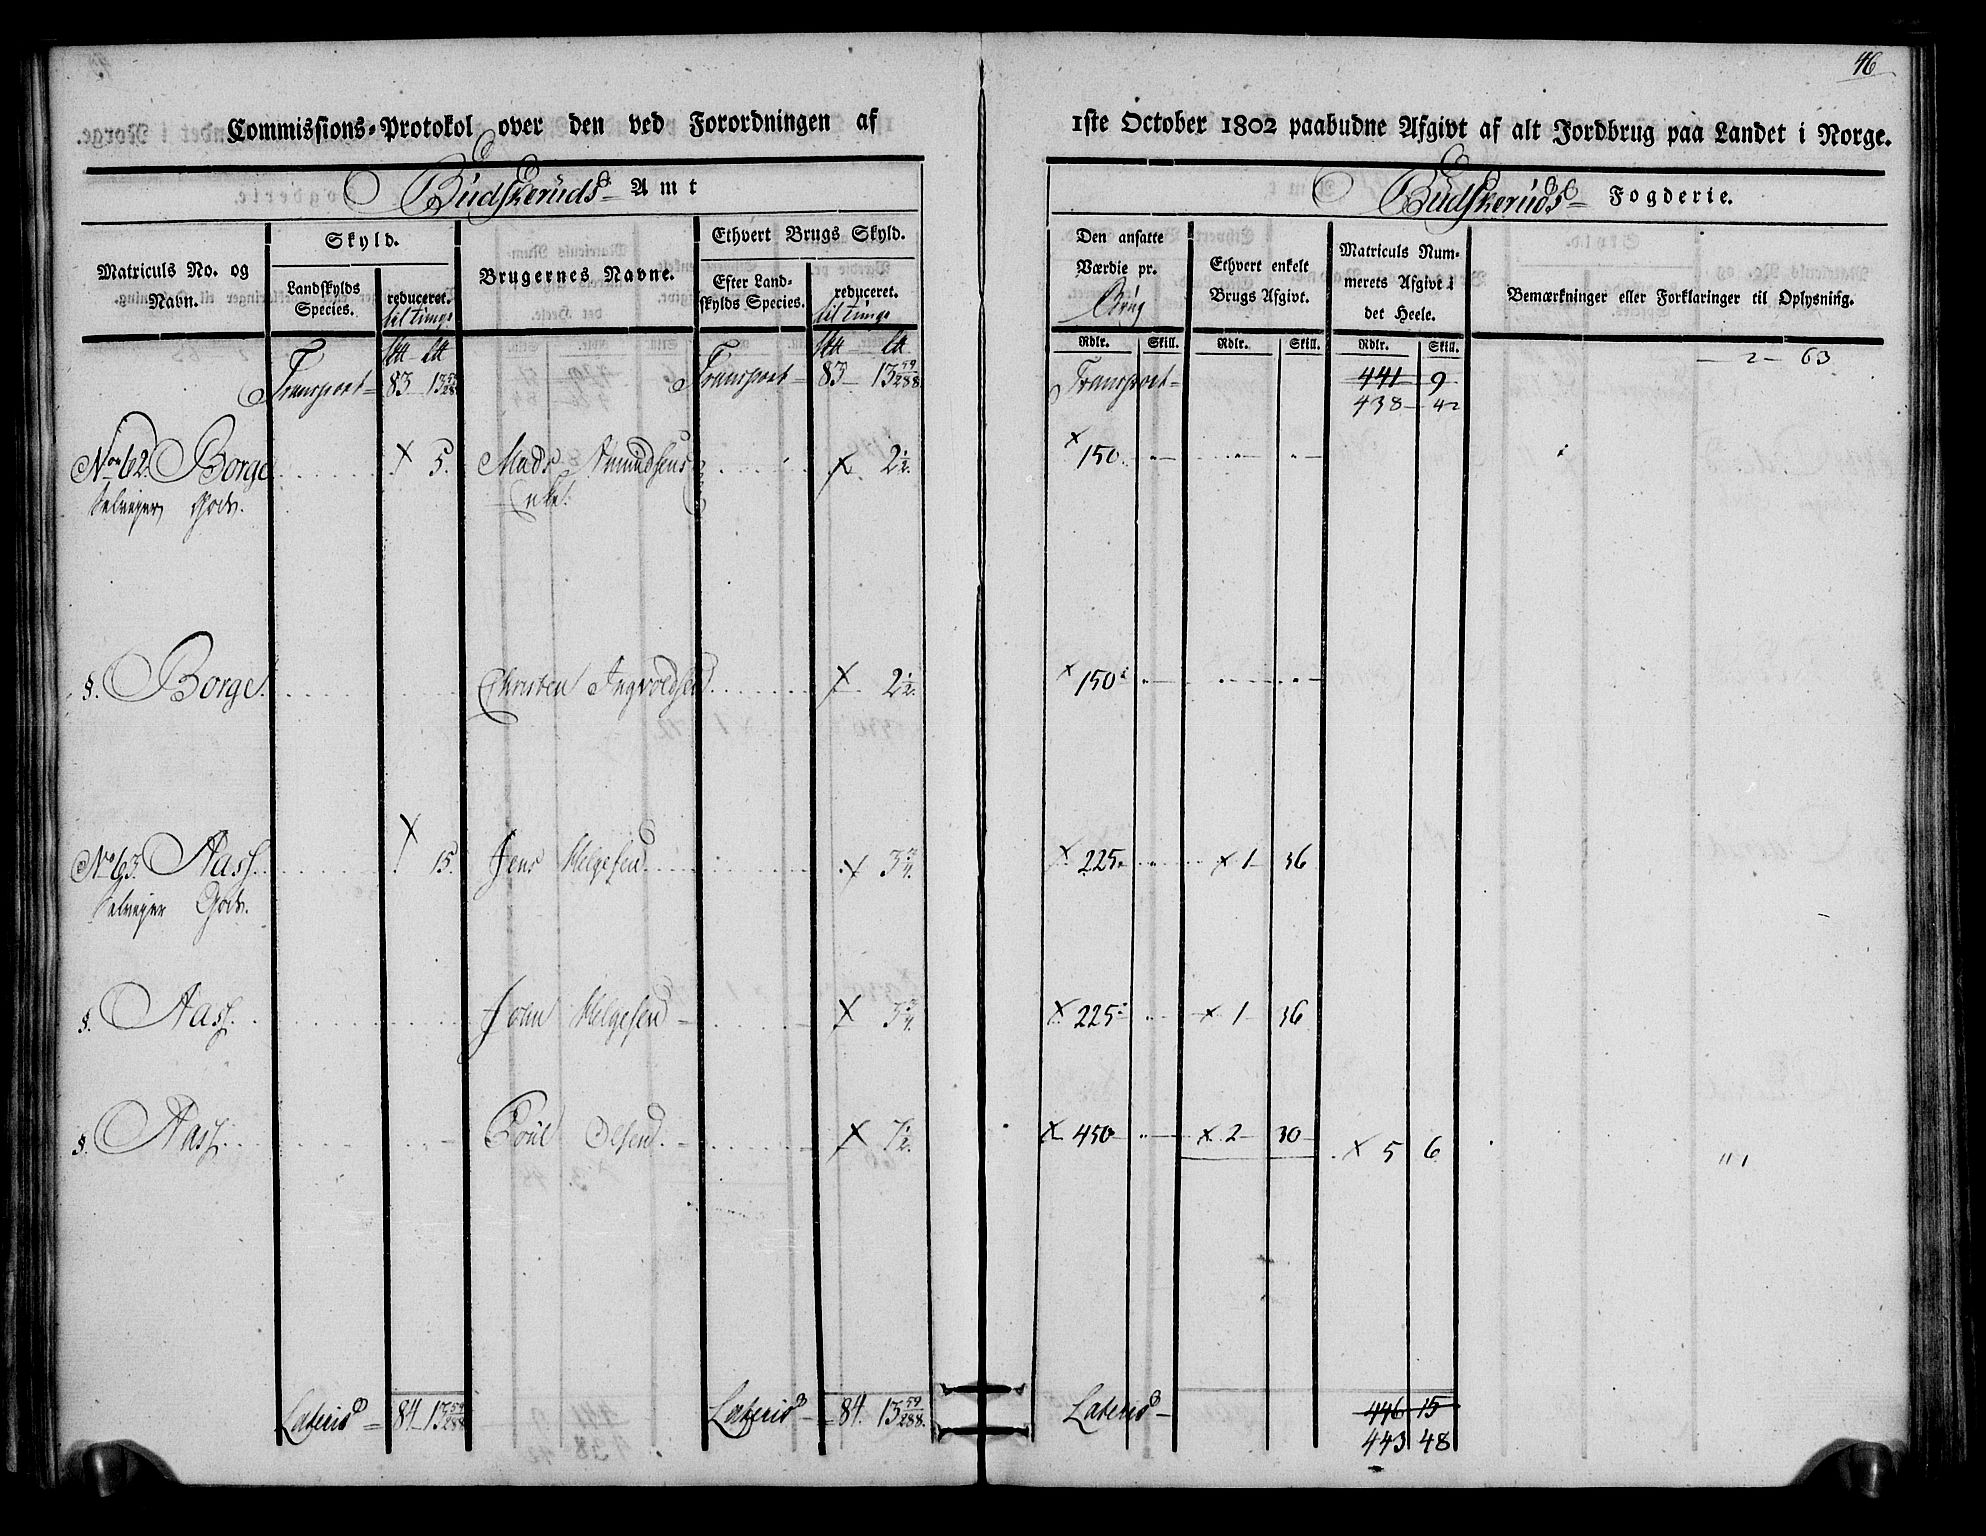 46
Commissions-Protokol over den ved Forordningen af 1ste October 1802 paabudne Afgivt af alt Jordbrug paa Landet i Norge.
Budskeruds Amt
Budskeruds Fogderie.
Matriculs No. og Navn.
Skyld.
Landskylds Species.
reduceret. til tunge
Brugernes Navne.
Ethvert Brugs Skyld.
Efter Landskylds Species.
reduceret. til tunge
Den ansatte Værdie pr. Brug
Ethvert enkelt Brugs Afgivt.
Matriculs Nummerets Afgivt i det Heele.
Bemærkninger eller Forklaringer til Oplysning.
Rdlr. Skill. Rdlr. Skill. Rdlr. Skill.
2 63
Transport 83 13 59/288 Transport 83 13 59/288 Transport 441 9
438 42
No 62. Borge 5. Mads Amundsens Enke. 2 1/2. 150
Selveyer Gods.
§. Borge. Christen Ingvoldsen 2 1/2. 150
No 63. Aass. 15. Jens Helgesen 3 3/4. 225 1 36
Selveyer Gods.
§. Aass. John Helgesen 3 3/4. 225 1 36
§. Aass. Poul Olsen 7 1/2. 450 2 30 5 6
Lateris 84 13 59/288 Lateris 84. 13 59/288. Lateris 446 15
443 48